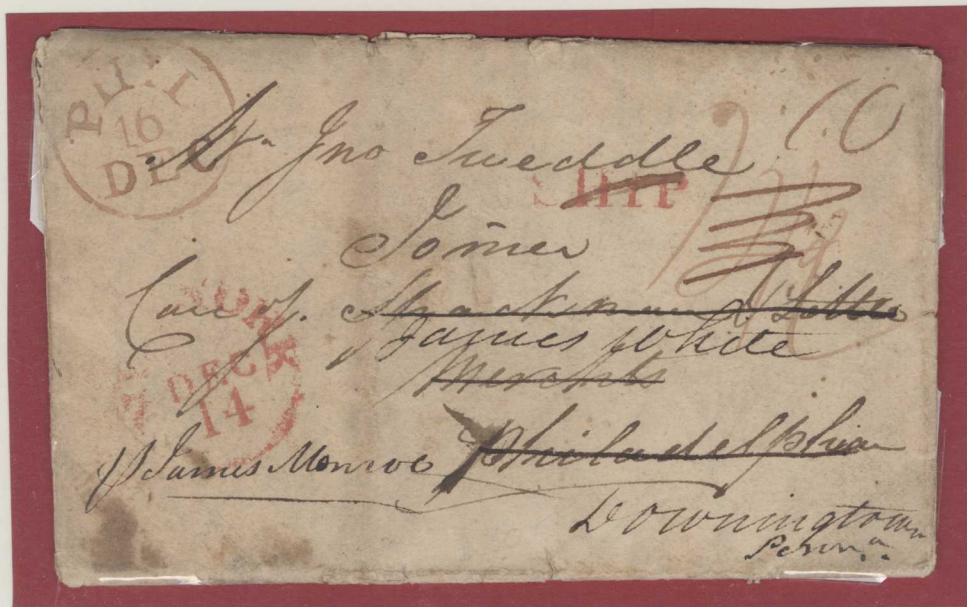 PHI
16
DEC
10
Mr. Jno Tweddle
SHIP
Joiner
Care of
James White
Merchts
YORK
DEC
14
p James Monroe
Philadelphia
Downingtown
Penna.